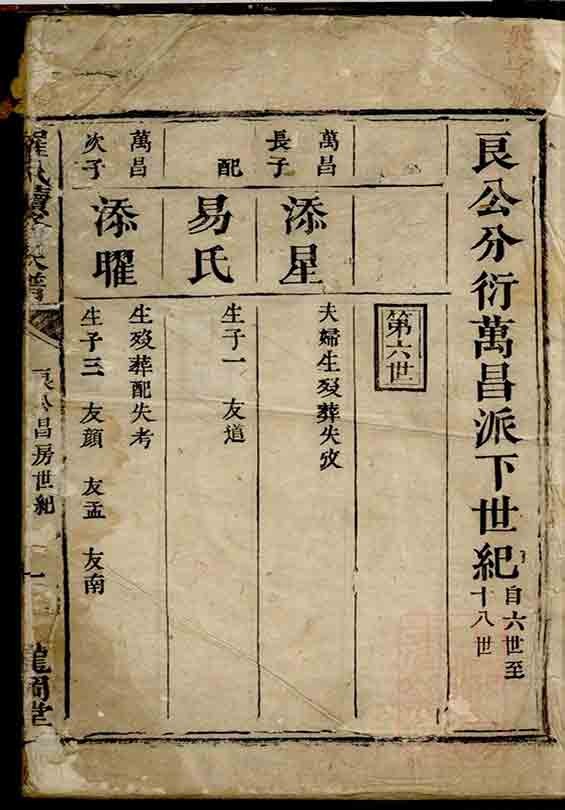 艮公分衍萬昌派下世紀
自六世至
十八世
第六世
萬昌
長子
添星
夫婦生歿葬失攷
配
易氏
生子一 友道
萬昌
次子
添曜
生歿葬配失考
生子三 友顏 友孟 友南
艮公昌房世紀
一